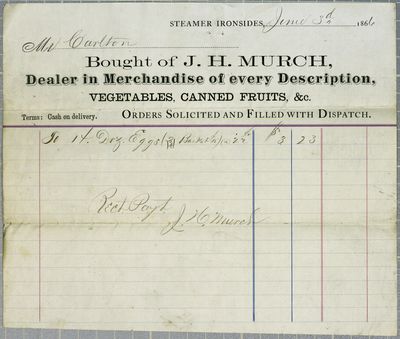 STEAMER IRONSIDES, June 3d 1866
Mr Carlton
Bought of J. H. MURCH,
Dealer in Merchandise of every Description,
VEGETABLES, CANNED FRUITS, &c.
Terms: Cash on delivery. ORDERS SOLICITED AND FILLED WITH DISPATCH.
To 14 Doz. Eggs $3 23
Rect Payt
J. H. Murch